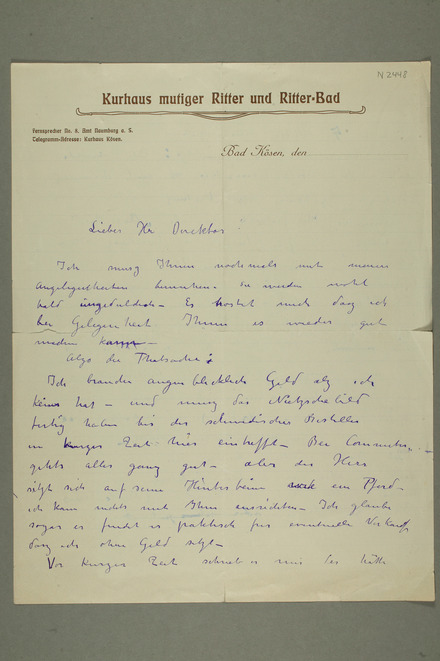 N 2448
Kurhaus mutiger Ritter und Ritter-Bad
Fernsprecher No. 8. Amt Naumburg a. S.
Telegramm-Adresse: Kurhaus Kösen.
Bad Kösen, den
Lieber Hr Direktor
Ich muss Ihnen nochmals mit meinen
Angelegenheiten kommen. Sie werden wohl
bald ungeduldich – Es tröstet mich dasz ich
bei Gelegenheit Ihnen es wieder gut
machen kann
Also die Thatsache:
Ich brauche augenblicklich Geld als ich
keins hat – und musz das Nietzschebild
fertig haben bis der schwedische Besteller
in kurzer Zeit hier eintrifft – Bei
geht alles ganz gut – aber der Herr
setzt sich auf seine Hinterbeine wie ein Pferd –
ich kann nichts mit Ihm ausrichten – Ich glaube
sogar er findet es praktisch für eventuelle Verkauf
dasz ich ohne Geld
Vor kurzer Zeit schrieb er mir er hätte